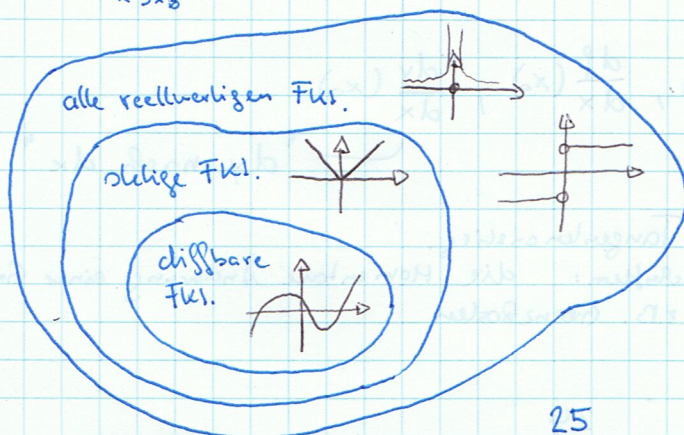 alle reellwertigen Fkt.
stetige Fkt.
diffbare
Fkt.
25